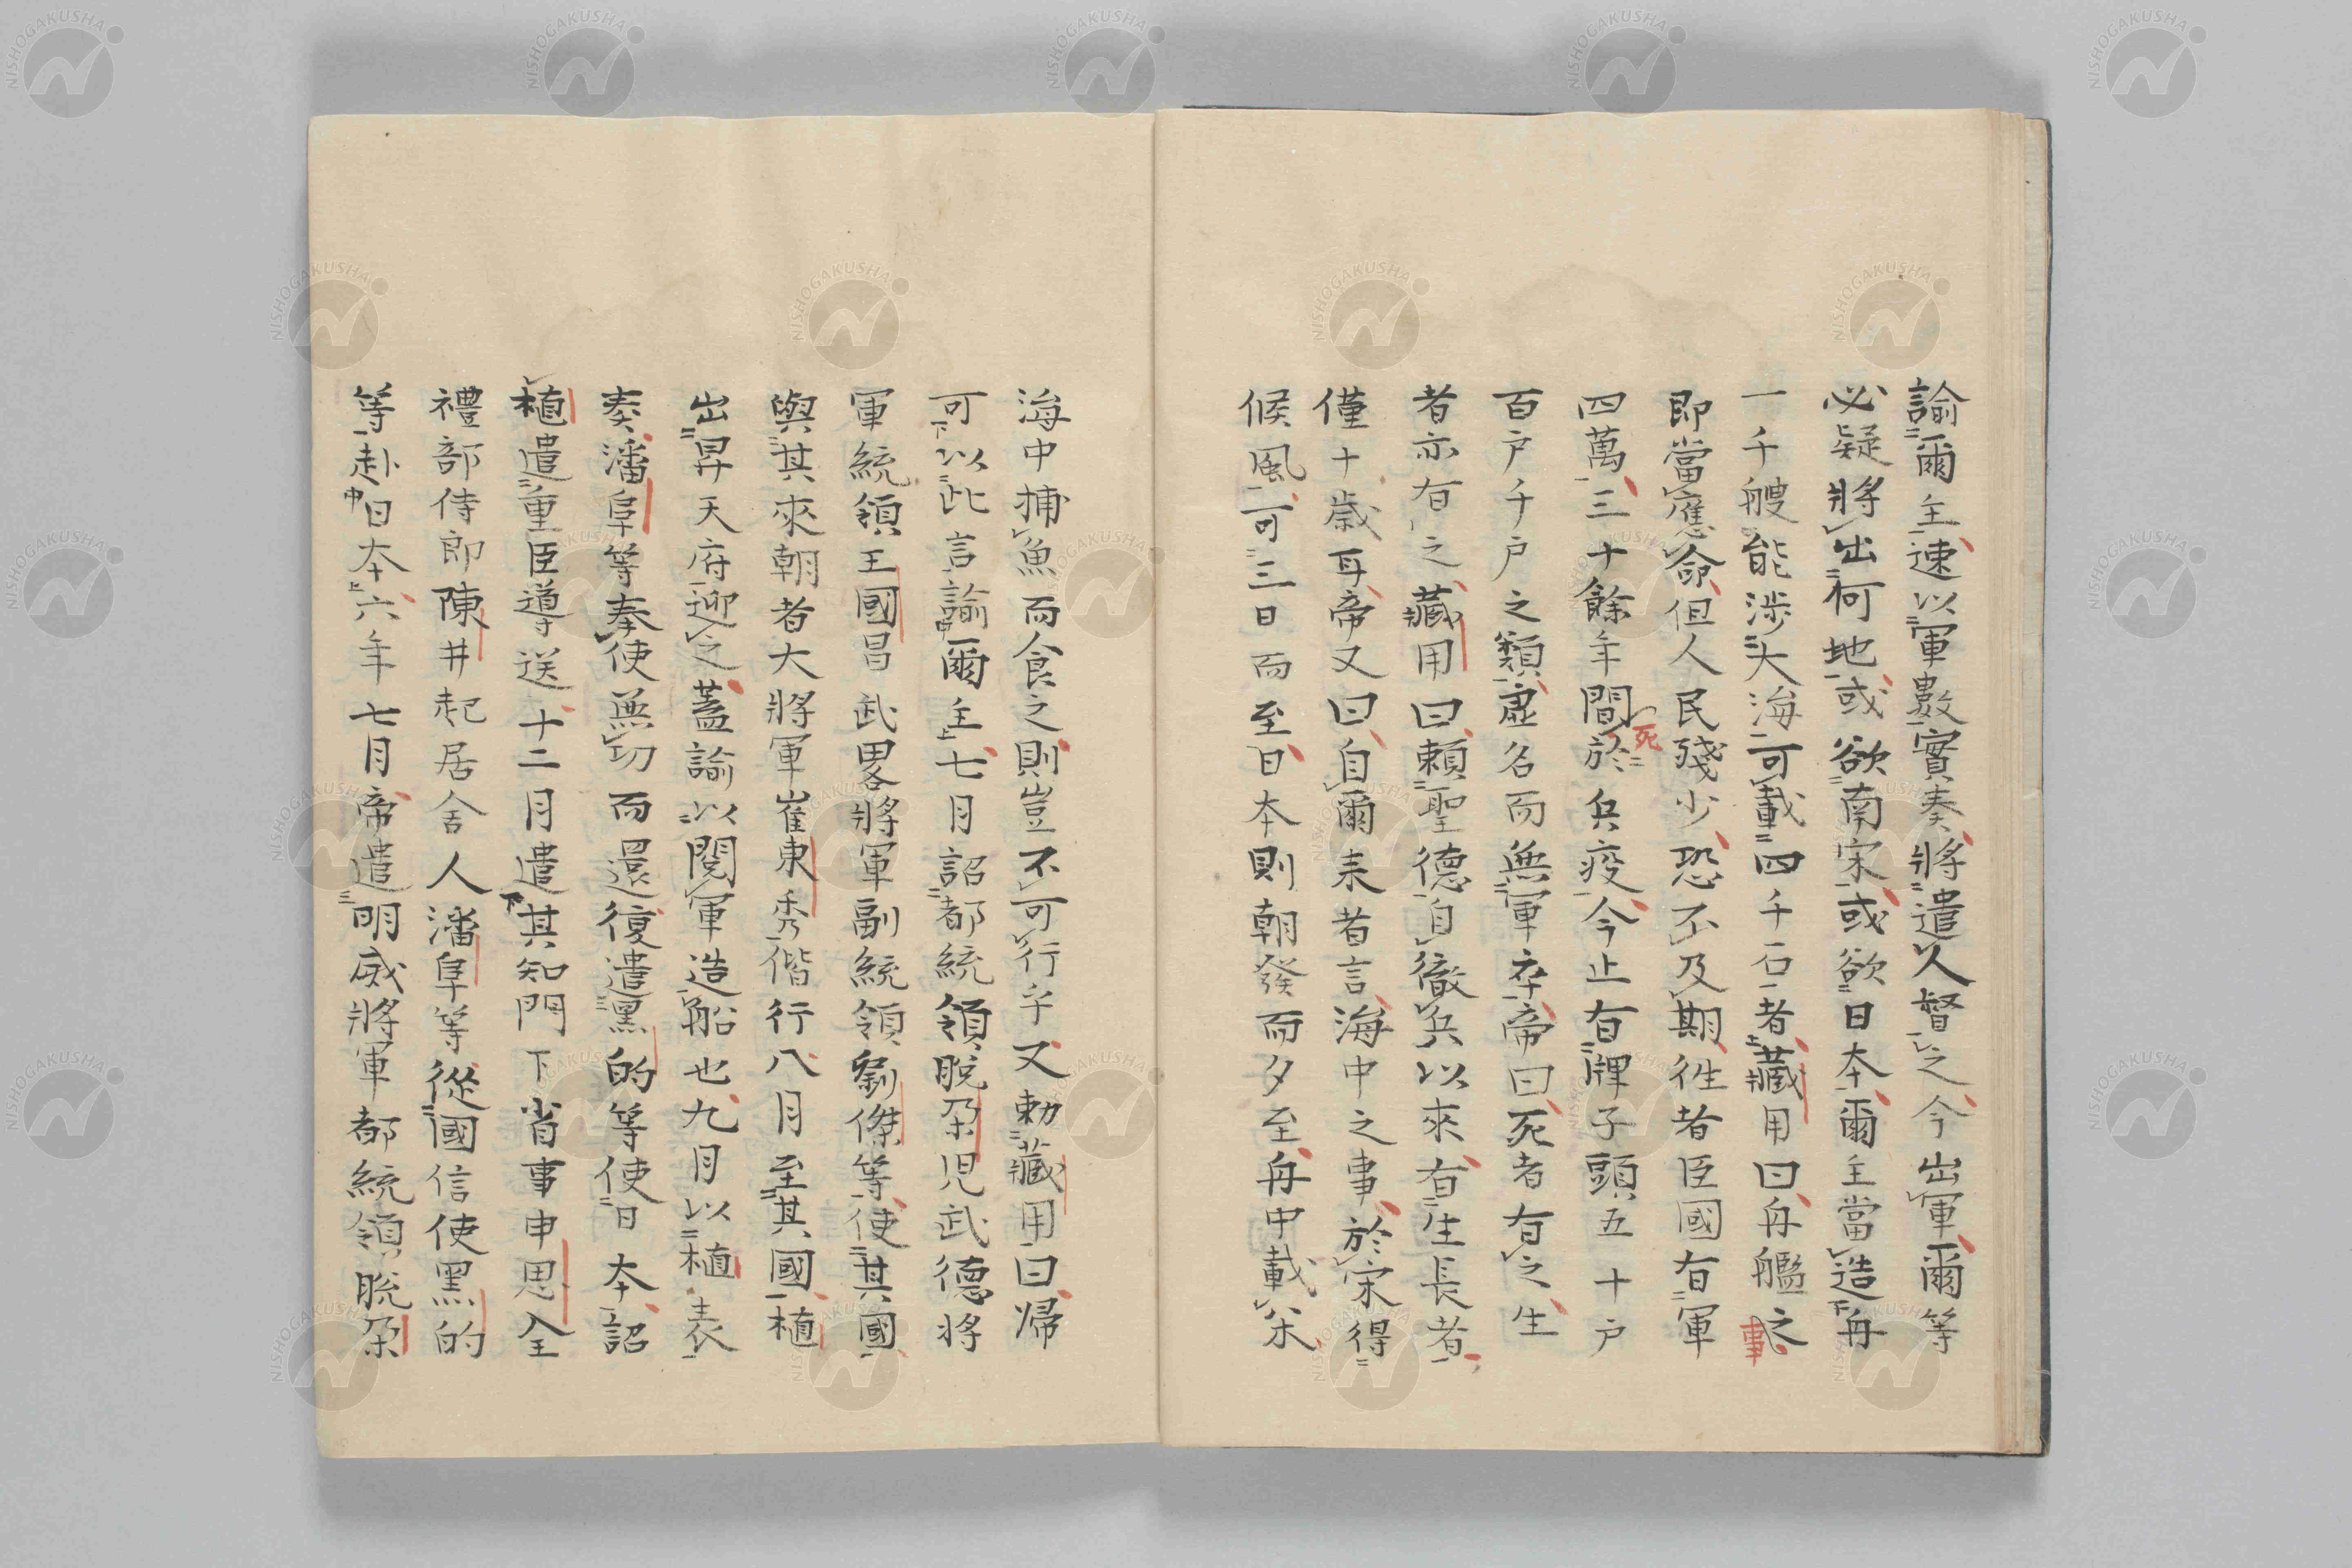 諭爾主速以軍數實奏將遣人督之今出軍爾等
必疑將出何地或欲南宋或欲日本爾主當造舟
一千艘能涉大海可載四千石者藏用曰舟艦之
事
即當應命但人民殘少恐不及期往者臣國有軍
四萬三十餘年間於兵疫今止有牌子頭五十戸
死
百戸千戸之類虛名而無軍卒帝曰死者有之生
者亦有之藏用曰賴聖德自徹兵以來有生長者
僅十歳耳帝又曰自爾来者言海中之事於宋得
候風可三日而至日本則朝發而夕至舟中載米
海中捕魚而食之則豈不可行乎又勅藏用曰帰
可以此言諭爾主七月詔都統領脱朶児武德将
軍統領王國昌武畧將軍副統領劉傑等使其國
與其來朝者大將軍崔東秀偕行八月至其國植
出昇天府迎之蓋諭以閱軍造船也九月以植表
奏潘阜等奉使無功而還復遣黑的等使日本詔
植遣重臣導送十二月遣其知門下省事申思全
禮部侍郎陳井起居舍人潘阜等從國信使黑的
等赴日本六年七月帝遣明威將軍都統領脱朶
NISHOGAKUSHA